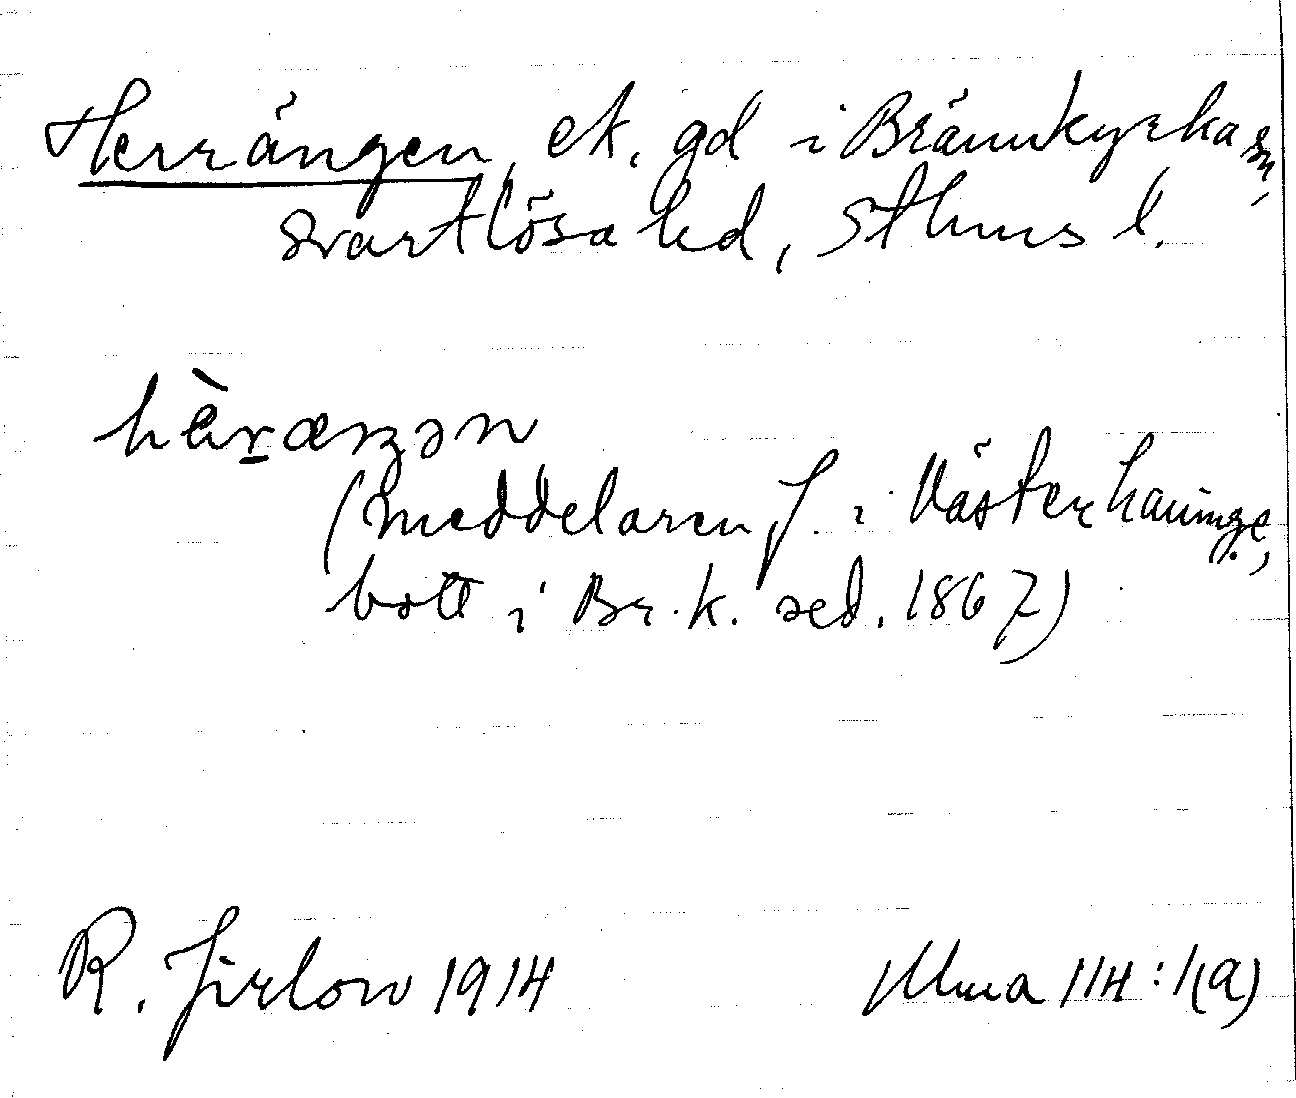 Herrängen, ek. gd i Brännkyrka sn,
Svartlösa hd, Sthms l.
hæ̀ræŋən
(meddelaren f. i Västerhaninge,
bott i Br.k. sed. 1867)
R. Jirlow 1914
Uma 114:1(a)